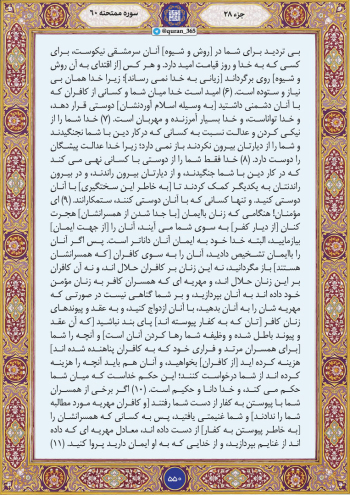 جزء ۲۸
سوره ممتحنه ۶۰
@quran_365
بی تردید برای شما در [روش و شیوه] آنان سرمشقی نیکوست، برای
کسی که به خدا و روز قیامت امید دارد. و هر کس [از اقتدای به آن روش
و شیوه] روی برگرداند [زیانی به خدا نمی رساند]؛ زیرا خدا همان بی
نیاز و ستوده است. (۶) امید است خدا میان شما و کسانی از کافران که
با آنان دشمنی داشتید [به وسیله اسلام آوردنشان] دوستی قرار دهد،
و خدا تواناست، و خدا بسیار آمرزنده و مهربان است. (۷) خدا شما را از
نیکی کردن و عدالت نسبت به کسانی که در کار دین با شما نجنگیدند
و شما را از دیارتان بیرون نکردند باز نمی دارد؛ زیرا خدا عدالت پیشگان
را دوست دارد. (۸) خدا فقط شما را از دوستی با کسانی نهی می کند
که در کار دین با شما جنگیدند، و از دیارتان بیرون راندند، و در بیرون
راندنتان به یکدیگر کمک کردند تا [به خاطر این سختگیری] با آنان
دوستی کنید. و تنها کسانی که با آنان دوستی کنند، ستمکارانند. (۹) ای
مؤمنان! هنگامی که زنان باایمان [با جدا شدن از همسرانشان] هجرت
کنان [از دیار کفر] به سوی شما می آیند، آنان را [از جهت ایمان]
بیازمایید، البته خدا خود به ایمان آنان داناتر است. پس اگر آنان
را باایمان تشخیص دادید، آنان را به سوی کافران [که همسرانشان
هستند] باز مگردانید، نه این زنان بر کافران حلال اند، و نه آن کافران
بر این زنان حلال اند، و مهریه ای که همسران کافر به زنان مؤمن
خود داده اند به آنان بپردازید، و بر شما گناهی نیست در صورتی که
مهریه شان را به آنان بدهید، با آنان ازدواج کنید، و به عقد و پیوندهای
زنان کافر [تان که به کفار پیوسته اند] پای بند نباشید [که آن عقد
و پیوند باطل شده و وظیفه شما رها کردن آنان است] و آنچه را شما
[برای همسران مرتد و فراری خود که به کافران پناهنده شده اند]
هزینه کرده اید [از کافران] بخواهید، و آنان هم باید آنچه را هزینه
کرده اند از شما درخواست کنند؛ این حکم خداست که میان شما
حکم می کند، و خدا دانا و حکیم است. (۱۰) اگر برخی از همسران
شما با پیوستن به کفار از دست شما رفتند [و کافران مهریه مورد مطالبه
شما را ندادند] و شما غنیمتی یافتید، پس به کسانی که همسرانشان را
[به خاطر پیوستن به کفار] از دست داده اند، معادل مهریه ای که داده
اند از غنایم بپردازید، و از خدایی که به او ایمان دارید پروا کنید. (۱۱)
۵۵۰